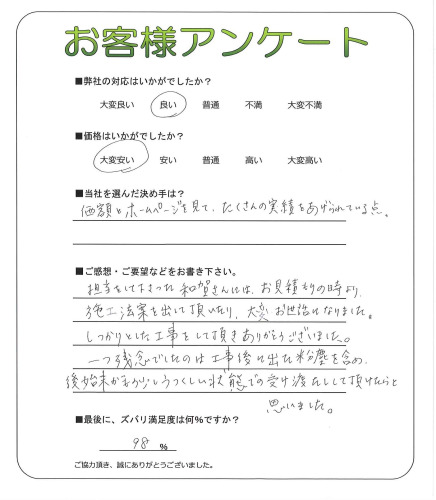 お客様アンケート
■弊社の対応はいかがでしたか?
大変良い 良い 普通 不満 大変不満
■価格はいかがでしたか?
大変安い 安い 普通 高い 大変高い
■当社を選んだ決め手は?
価額とホームページを見て、たくさんの実績をあげられている点。
■ご感想・ご要望などをお書き下さい。
担当をして下さった和賀さんには、お見積もりの時より、
施工法案を出して頂いたり、大変お世話になりました。
しっかりとした工事をして頂きありがとうございました。
一つ残念でしたのは工事後に出た粉塵を含め、
後始末がもう少しうつくしい状態での受け渡しとして頂けたらと
思いました。
■最後に、ズバリ満足度は何%ですか?
98 %
ご協力頂き、誠にありがとうございました。